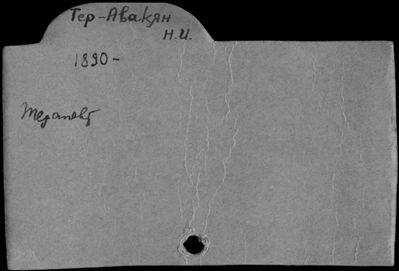 Тер-Авакян
Н.И.
1890-
Терапевт